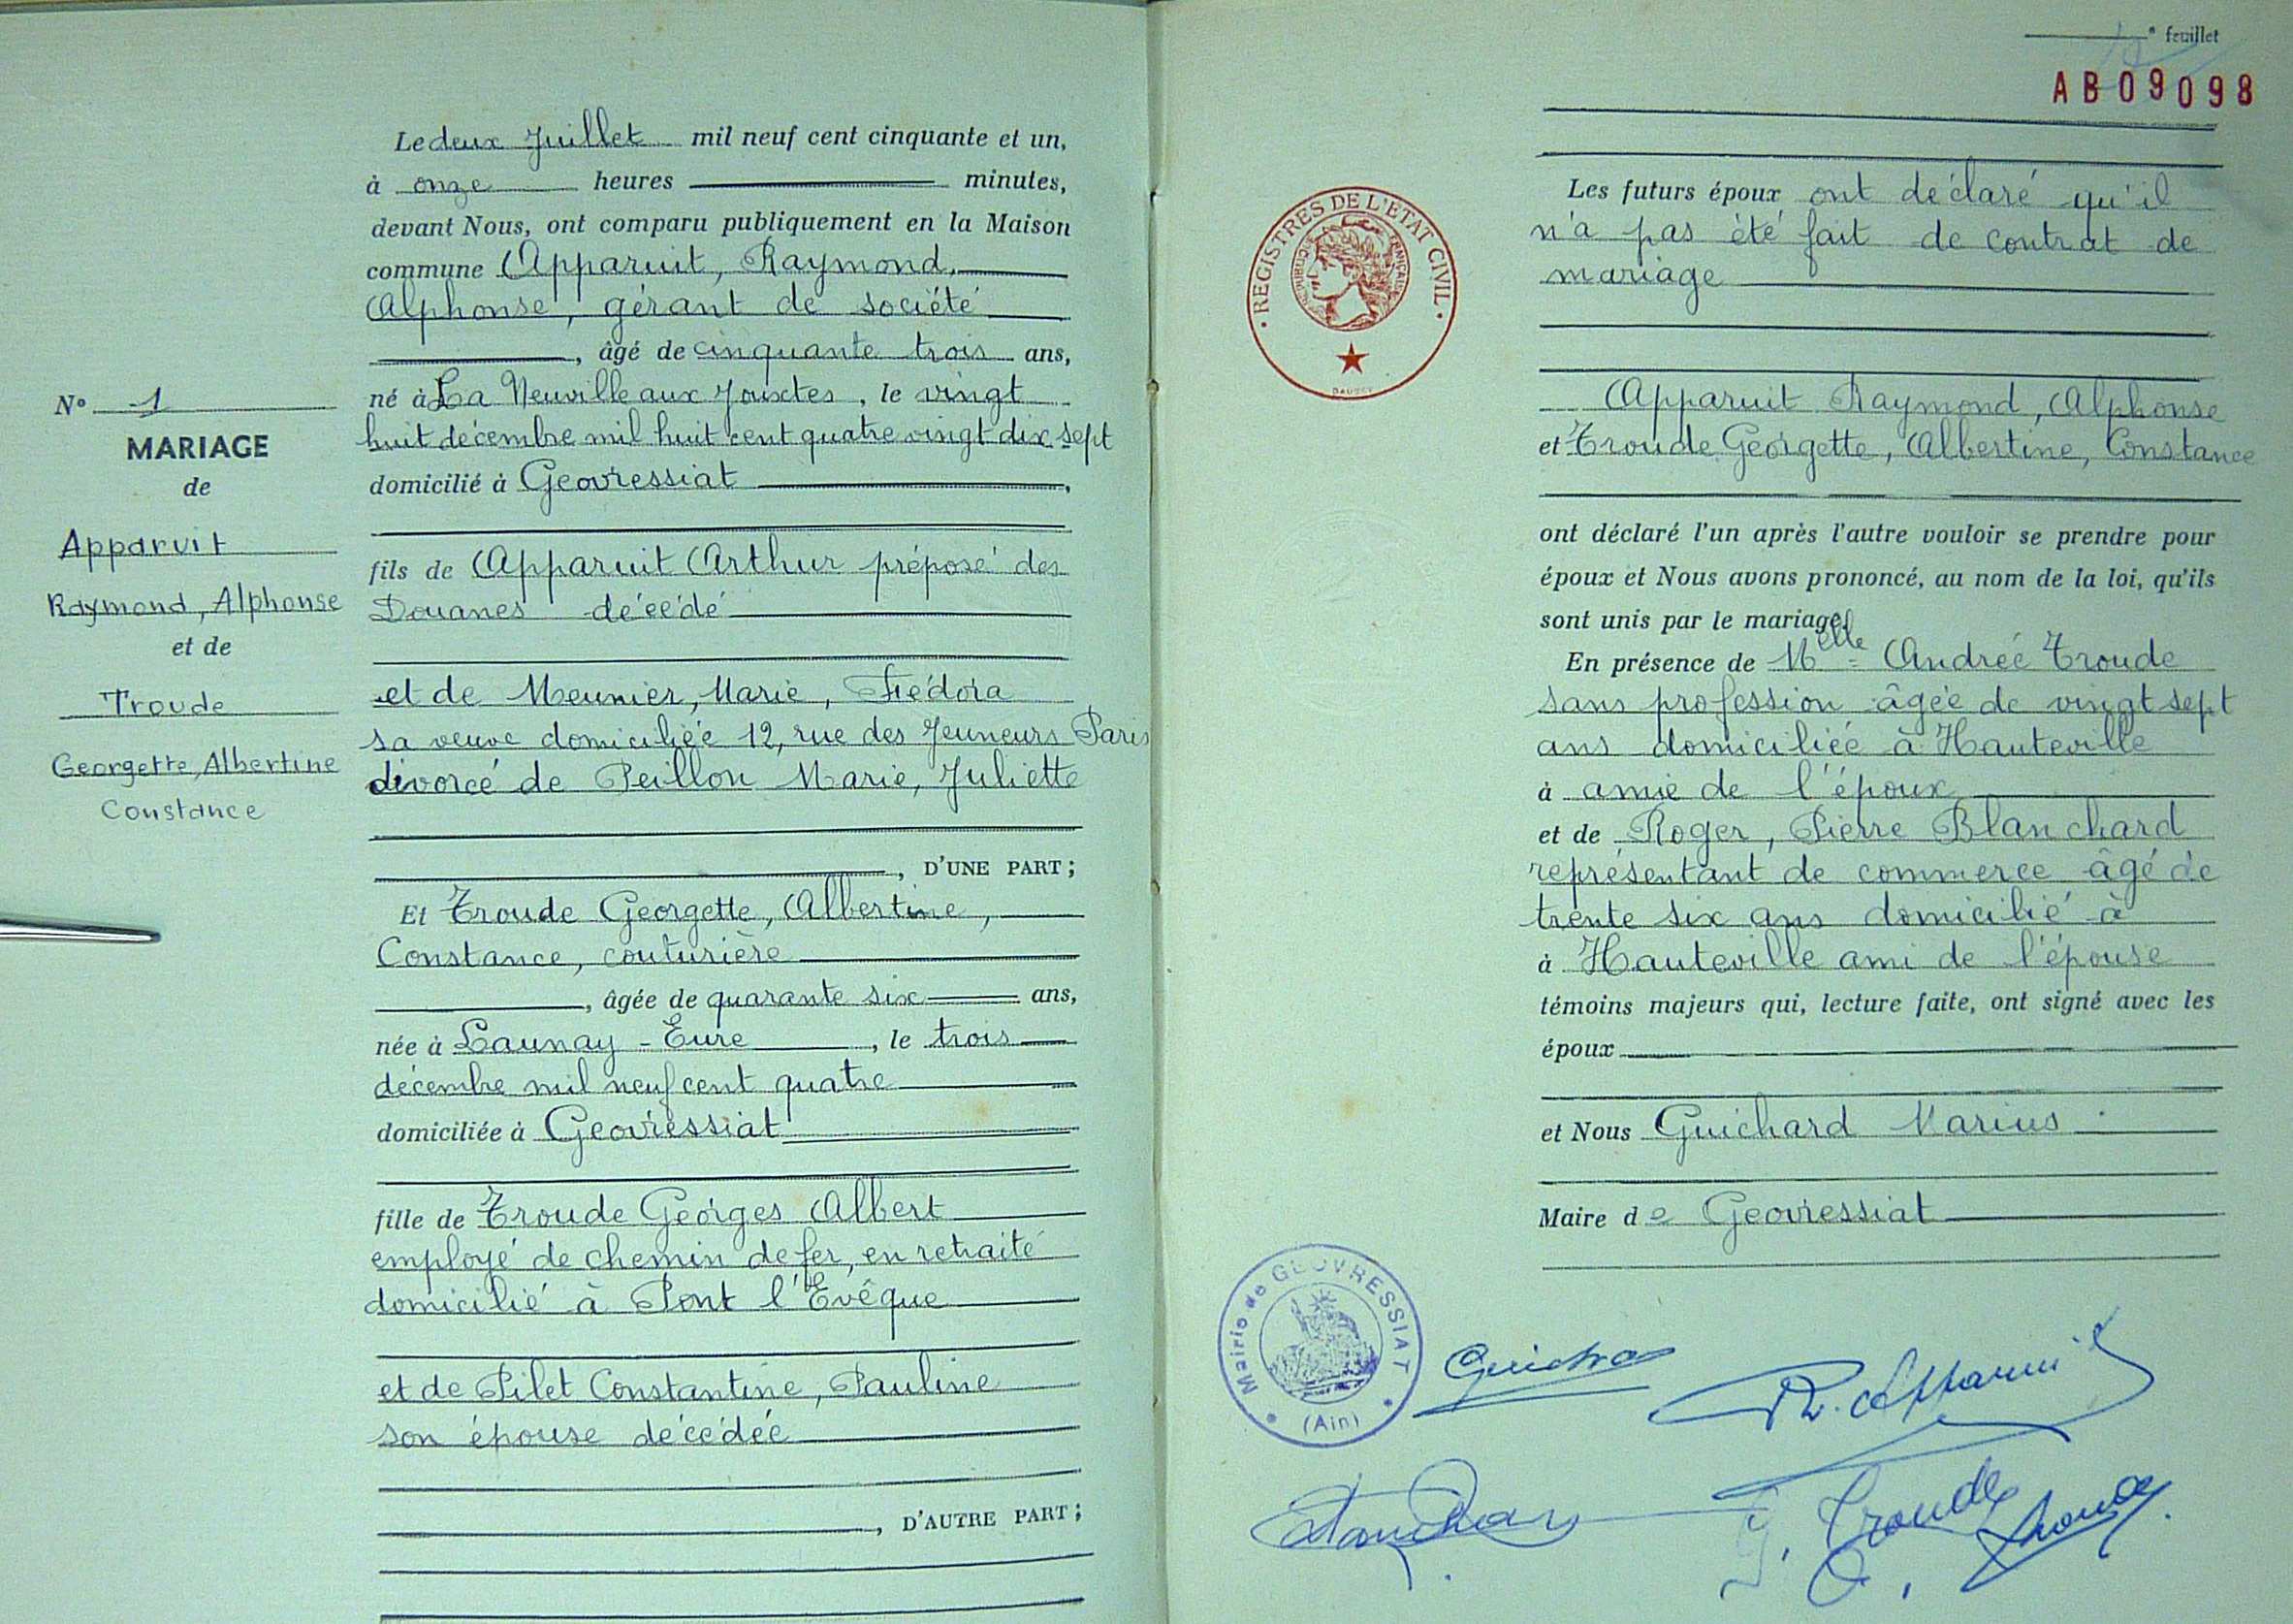 Le deux Juillet mil neuf cent cinquante et un,
à onze heures minutes,
devant Nous, ont comparu publiquement en la Maison
commune Apparuit, Raymond,
Alphonse, gérant de société
, âgé de cinquante trois ans,
né à La Neuville aux Jouxtes, le vingt
huit décembre mil huit cent quatre vingt dix sept
domicilié à Geovressiat,
fils de Apparuit Arthur préposé des
Douanes décédé
et de Meunier, Marie, Fiédora
sa veuve domiciliée 12, rue des Jeuneurs Paris
divorcé de Peillon Marie, Juliette
, D'UNE PART ;
Et Troude Georgette, Albertine,
Constance, couturière
, âgée de quarante six ans,
née à Launay - Eure, le trois
décembre mil neuf cent quatre
domiciliée à Geovressiat
fille de Troude Georges Albert
employé de chemin de fer, en retraite
domicilié à Pont l'Evêque
et de Pilet Constantine, Pauline
son épouse décédée
, D'AUTRE PART ;
N° 1
MARIAGE
de
Apparuit
Raymond, Alphonse
et de
Troude
Georgette, Albertine
Constance
e feuillet
AB09098
REGISTRES DE L'ETAT CIVIL
Les futurs époux ont déclaré qu'il
n'a pas été fait de contrat de
mariage
Apparuit Raymond, Alphonse
et Troude Georgette, Albertine, Constance
ont déclaré l'un après l'autre vouloir se prendre pour
époux et Nous avons prononcé, au nom de la loi, qu'ils
sont unis par le mariage.
En présence de Melle Andrée Troude
sans profession âgée de vingt sept
ans domiciliée à Hauteville
à amie de l'époux
et de Roger, Pierre Blanchard
représentant de commerce âgé de
trente six ans domicilié à
à Hauteville ami de l'épouse
témoins majeurs qui, lecture faite, ont signé avec les
époux
et Nous Guichard Marius
Maire de Geovressiat
Mairie de GEOVRESSIAT
(Ain)
R. Apparuit
G. Troude